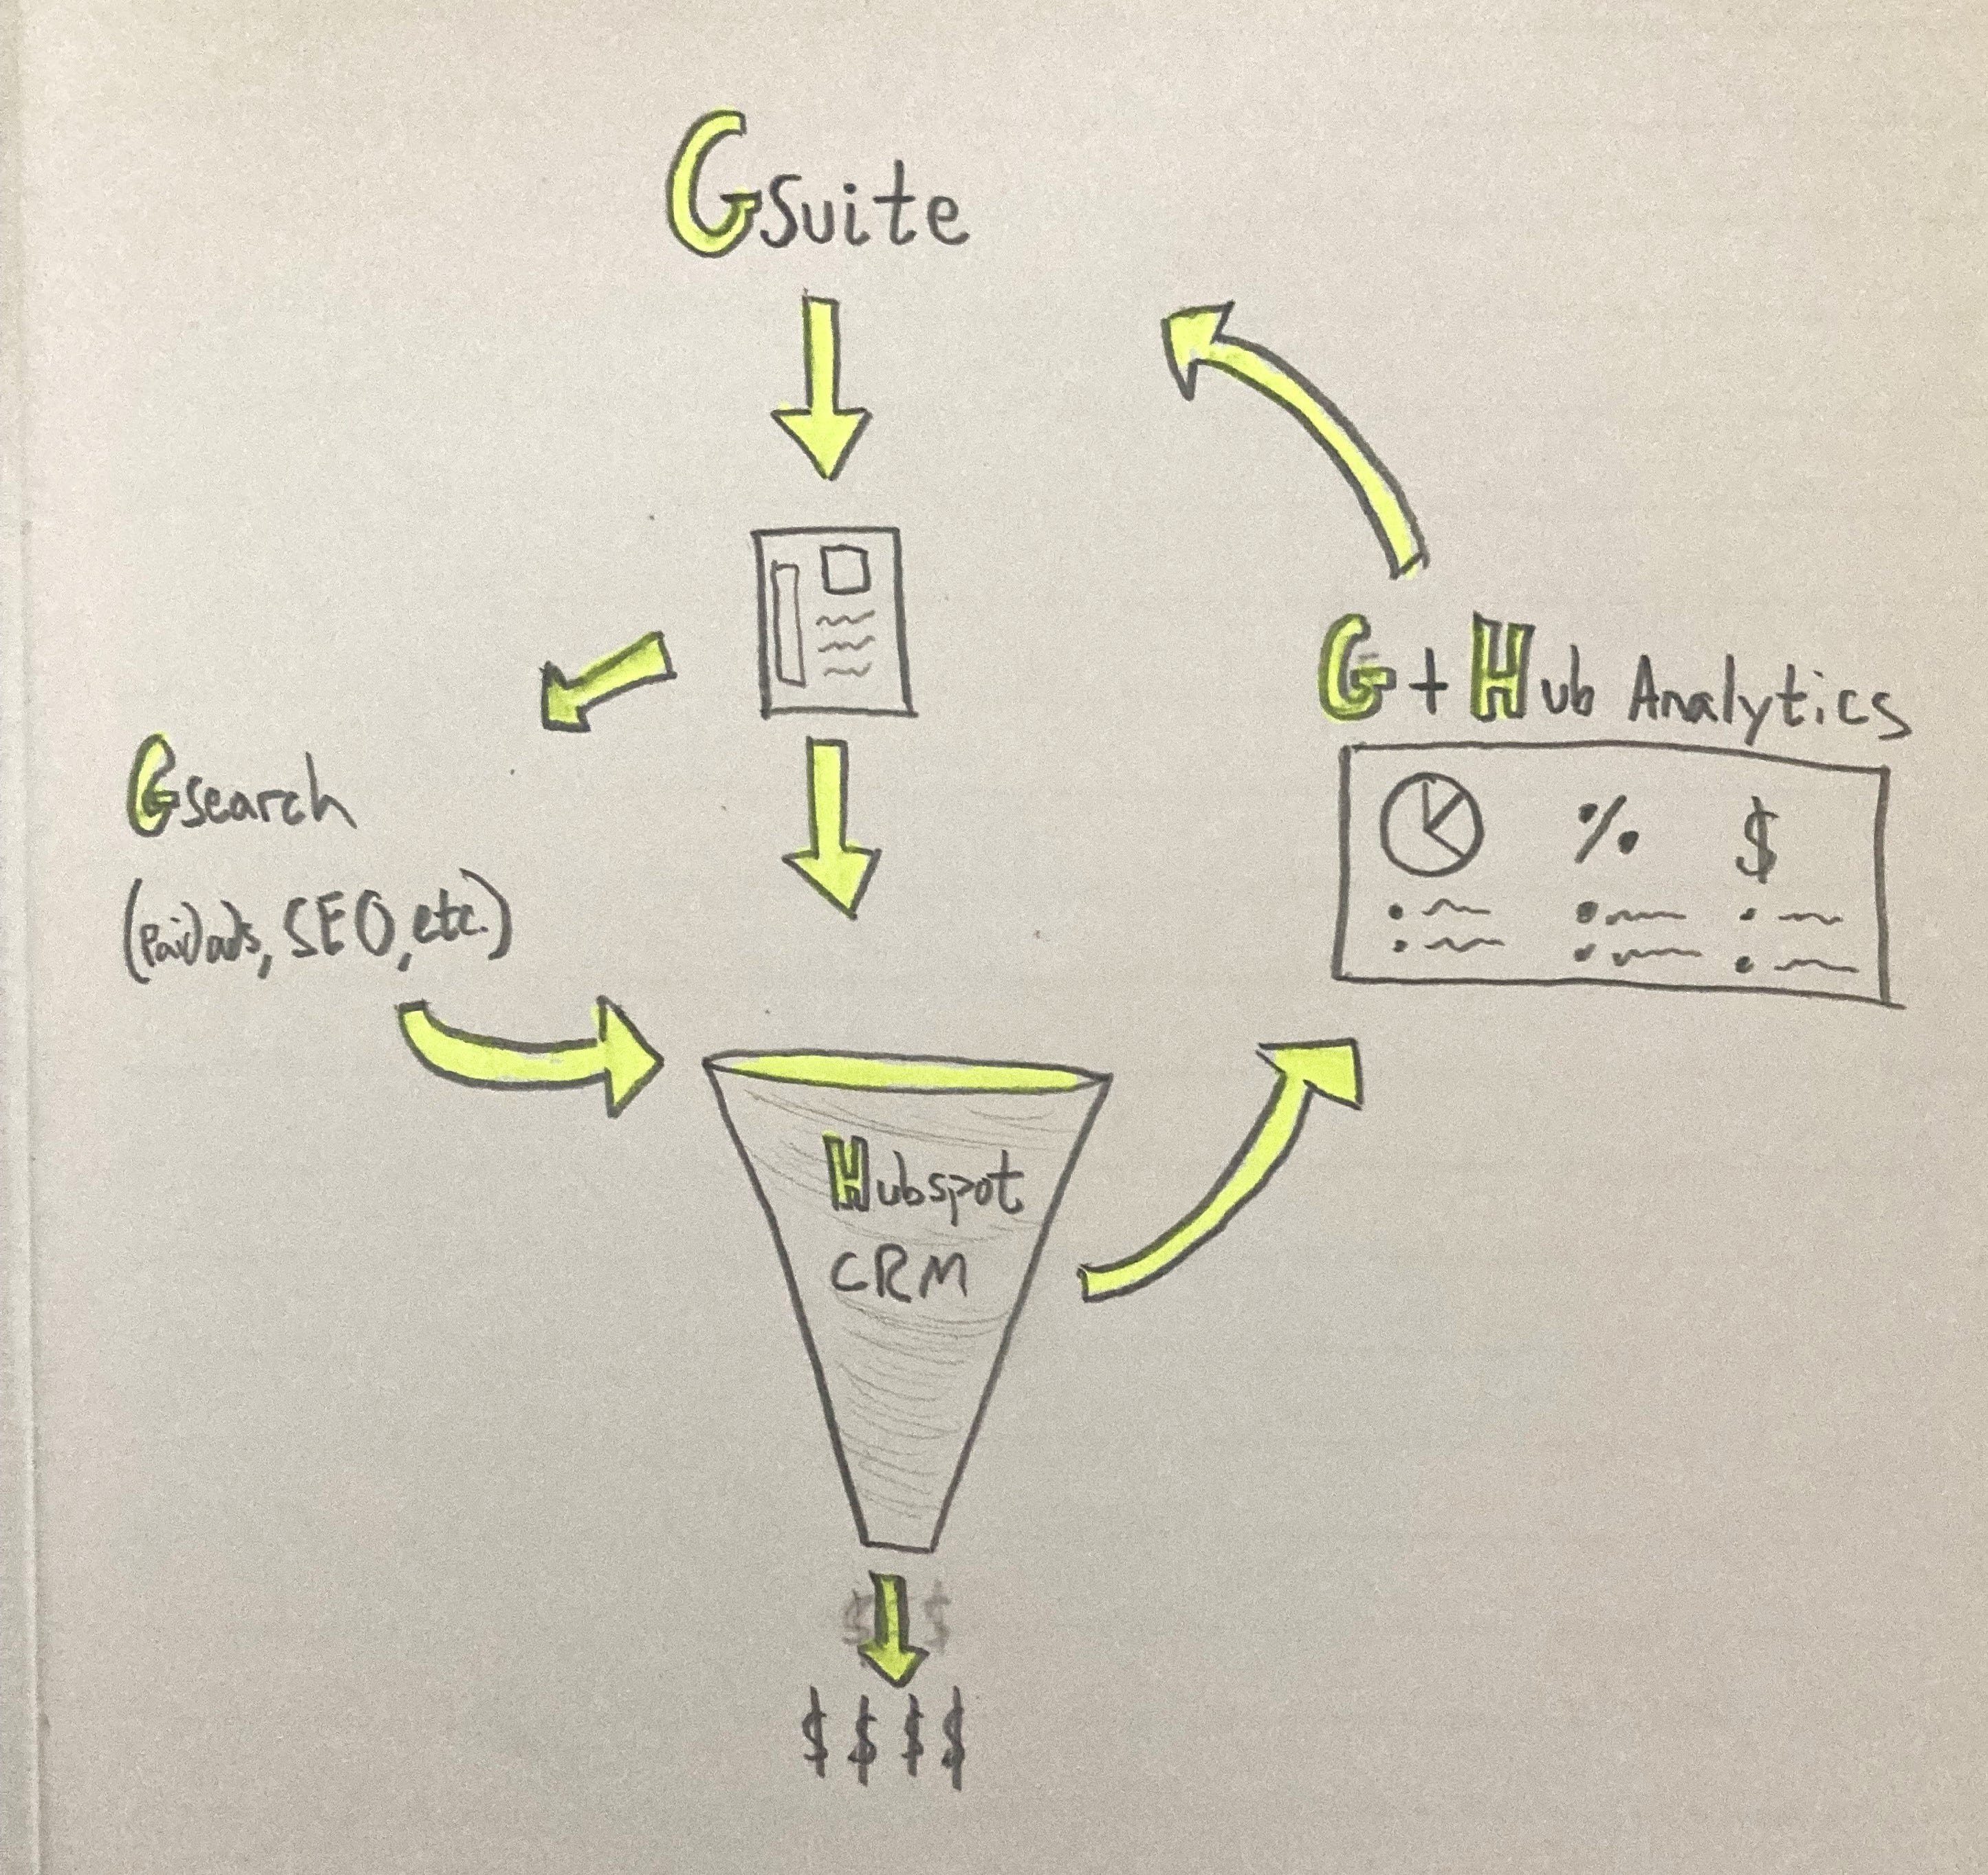 GSuite
G + Hub Analytics
% $
Gsearch
(Paid ads, SEO, etc.)
Hubspot
CRM
$ $
$ $ $ $